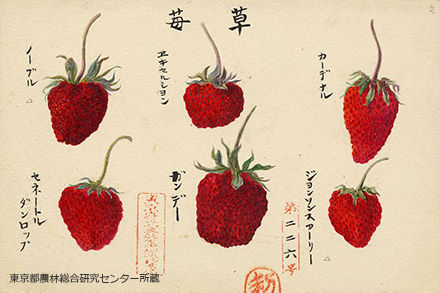 草苺
カーディナル
ヱキセルシヨン
ノーブル
ジヨンソンスアーリー
ガンデー
セネートル
ダンロップ
第二二六号
東京都農林総合研究センター所蔵